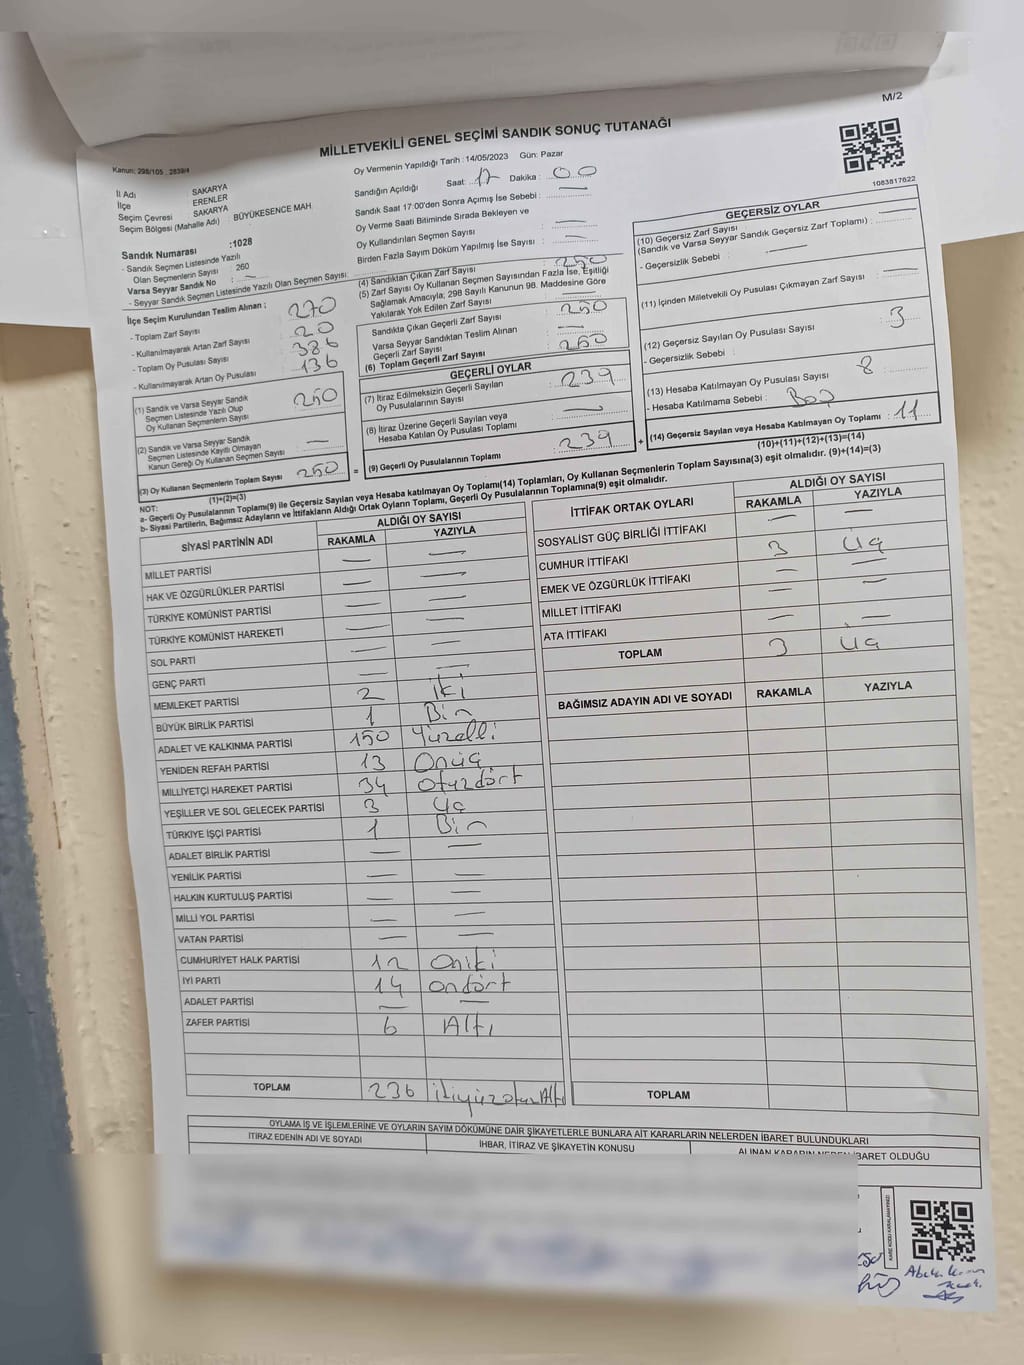 M/2
MİLLETVEKİLİ GENEL SEÇİMİ SANDIK SONUÇ TUTANAĞI
Kanun: 298/105 2839/4
Oy Vermenin Yapıldığı Tarih : 14/05/2023 Gün: Pazar
1083817622
İl Adı SAKARYA
İlçe ERENLER
Seçim Çevresi SAKARYA
Seçim Bölgesi (Mahalle Adı) BÜYÜKESENCE MAH.
Sandık Numarası :1028
- Sandık Seçmen Listesinde Yazılı
Olan Seçmenlerin Sayısı : 260
Varsa Seyyar Sandık No : —
- Seyyar Sandık Seçmen Listesinde Yazılı Olan Seçmen Sayısı:
Sandığın Açıldığı Saat: 17 Dakika : 00
Sandık Saat 17:00'den Sonra Açımış İse Sebebi : —
Oy Verme Saati Bitiminde Sırada Bekleyen ve
Oy Kullandırılan Seçmen Sayısı : —
Birden Fazla Sayım Döküm Yapılmış İse Sayısı : —
İlçe Seçim Kurulundan Teslim Alınan :
- Toplam Zarf Sayısı 270
- Kullanılmayarak Artan Zarf Sayısı 20
- Toplam Oy Pusulası Sayısı 386
- Kullanılmayarak Artan Oy Pusulası 136
(1) Sandık ve Varsa Seyyar Sandık
Seçmen Listesinde Yazılı Olup
Oy Kullanan Seçmenlerin Sayısı 250
(2) Sandık ve Varsa Seyyar Sandık
Seçmen Listesinde Kayıtlı Olmayan
Kanun Gereği Oy Kullanan Seçmen Sayısı —
(3) Oy Kullanan Seçmenlerin Toplam Sayısı 250
(1)+(2)=(3)
(4) Sandıktan Çıkan Zarf Sayısı : 250
(5) Zarf Sayısı Oy Kullanan Seçmen Sayısından Fazla İse, Eşitliği
Sağlamak Amacıyla; 298 Sayılı Kanunun 98. Maddesine Göre
Yakılarak Yok Edilen Zarf Sayısı : —
Sandıkta Çıkan Geçerli Zarf Sayısı : 250
Varsa Seyyar Sandıktan Teslim Alınan
Geçerli Zarf Sayısı : —
(6) Toplam Geçerli Zarf Sayısı : 250
GEÇERLİ OYLAR
(7) İtiraz Edilmeksizin Geçerli Sayılan
Oy Pusulalarının Sayısı : 239
(8) İtiraz Üzerine Geçerli Sayılan veya
Hesaba Katılan Oy Pusulası Toplamı : —
= (9) Geçerli Oy Pusulalarının Toplamı : 239 +
GEÇERSİZ OYLAR
(10) Geçersiz Zarf Sayısı : —
(Sandık ve Varsa Seyyar Sandık Geçersiz Zarf Toplamı) :
- Geçersizlik Sebebi : —
(11) İçinden Milletvekili Oy Pusulası Çıkmayan Zarf Sayısı : —
(12) Geçersiz Sayılan Oy Pusulası Sayısı : 3
- Geçersizlik Sebebi :
(13) Hesaba Katılmayan Oy Pusulası Sayısı : 8
- Hesaba Katılmama Sebebi : Boş
(14) Geçersiz Sayılan veya Hesaba Katılmayan Oy Toplamı : 11
(10)+(11)+(12)+(13)=(14)
NOT:
a- Geçerli Oy Pusulalarının Toplamı(9) ile Geçersiz Sayılan veya Hesaba katılmayan Oy Toplamı(14) Toplamları, Oy Kullanan Seçmenlerin Toplam Sayısına(3) eşit olmalıdır. (9)+(14)=(3)
b- Siyasi Partilerin, Bağımsız Adayların ve İttifakların Aldığı Ortak Oyların Toplamı, Geçerli Oy Pusulalarının Toplamına(9) eşit olmalıdır.
SİYASİ PARTİNİN ADI ALDIĞI OY SAYISI
RAKAMLA YAZIYLA
MİLLET PARTİSİ — —
HAK VE ÖZGÜRLÜKLER PARTİSİ — —
TÜRKİYE KOMÜNİST PARTİSİ — —
TÜRKİYE KOMÜNİST HAREKETİ — —
SOL PARTİ — —
GENÇ PARTİ — —
MEMLEKET PARTİSİ 2 iki
BÜYÜK BİRLİK PARTİSİ 1 Bir
ADALET VE KALKINMA PARTİSİ 150 Yüzelli
YENİDEN REFAH PARTİSİ 13 Onüç
MİLLİYETÇİ HAREKET PARTİSİ 34 Otuzdört
YEŞİLLER VE SOL GELECEK PARTİSİ 3 Üç
TÜRKİYE İŞÇİ PARTİSİ 1 Bir
ADALET BİRLİK PARTİSİ — —
YENİLİK PARTİSİ — —
HALKIN KURTULUŞ PARTİSİ — —
MİLLİ YOL PARTİSİ — —
VATAN PARTİSİ — —
CUMHURİYET HALK PARTİSİ 12 Oniki
İYİ PARTİ 14 ondört
ADALET PARTİSİ — —
ZAFER PARTİSİ 6 Altı
TOPLAM 236 ikiyüzotuzAltı
İTTİFAK ORTAK OYLARI ALDIĞI OY SAYISI
RAKAMLA YAZIYLA
SOSYALİST GÜÇ BİRLİĞİ İTTİFAKI — —
CUMHUR İTTİFAKI 3 Üç
EMEK VE ÖZGÜRLÜK İTTİFAKI — —
MİLLET İTTİFAKI — —
ATA İTTİFAKI — —
TOPLAM 3 Üç
BAĞIMSIZ ADAYIN ADI VE SOYADI RAKAMLA YAZIYLA
TOPLAM
OYLAMA İŞ VE İŞLEMLERİNE VE OYLARIN SAYIM DÖKÜMÜNE DAİR ŞİKAYETLERLE BUNLARA AİT KARARLARIN NELERDEN İBARET BULUNDUKLARI
İTİRAZ EDENİN ADI VE SOYADI İHBAR, İTİRAZ VE ŞİKAYETİN KONUSU ALINAN KARARIN NEDEN İBARET OLDUĞU